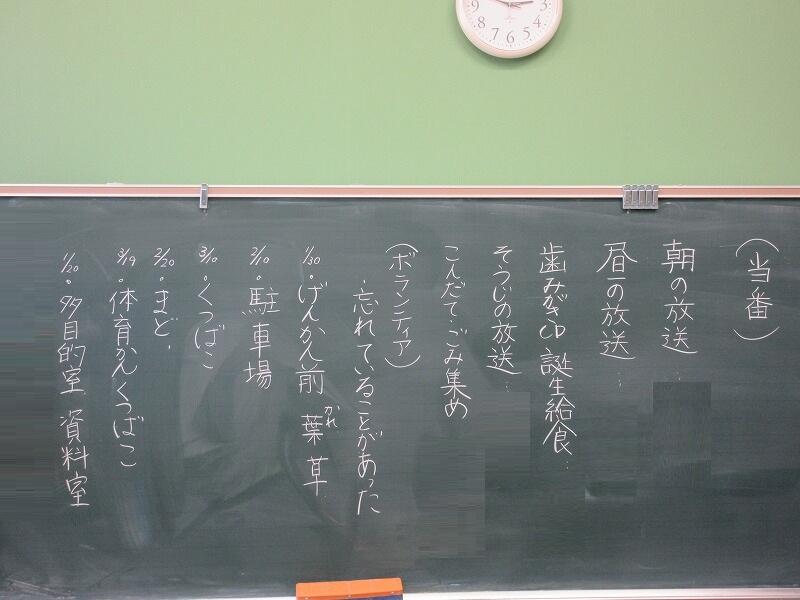 (当番)
朝の放送
昼の放送…
歯みがきCD 誕生給食…
そうじの放送…
こんだて、ごみ集め
(ボランティア)
・忘れていることがあった
1/30・げんかん前 葉 草
かれ
2/10・駐車場
3/10・くつばこ
2/20・まど・
3/19・体育かんくつばこ
1/20・多目的室 資料室
9 8 7 6 5 4 3